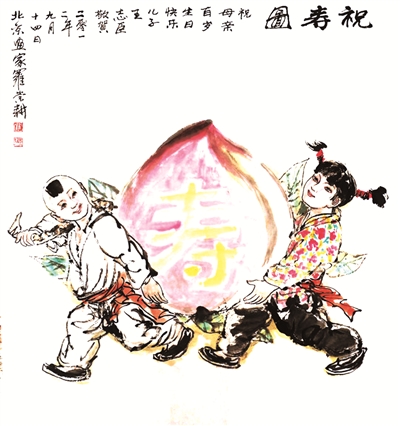 祝寿圖
祝
母亲
百岁
生日
快乐
儿子
王
志臣
敬贺
二零一
二年
九月
十四日
北京画家羅
寿